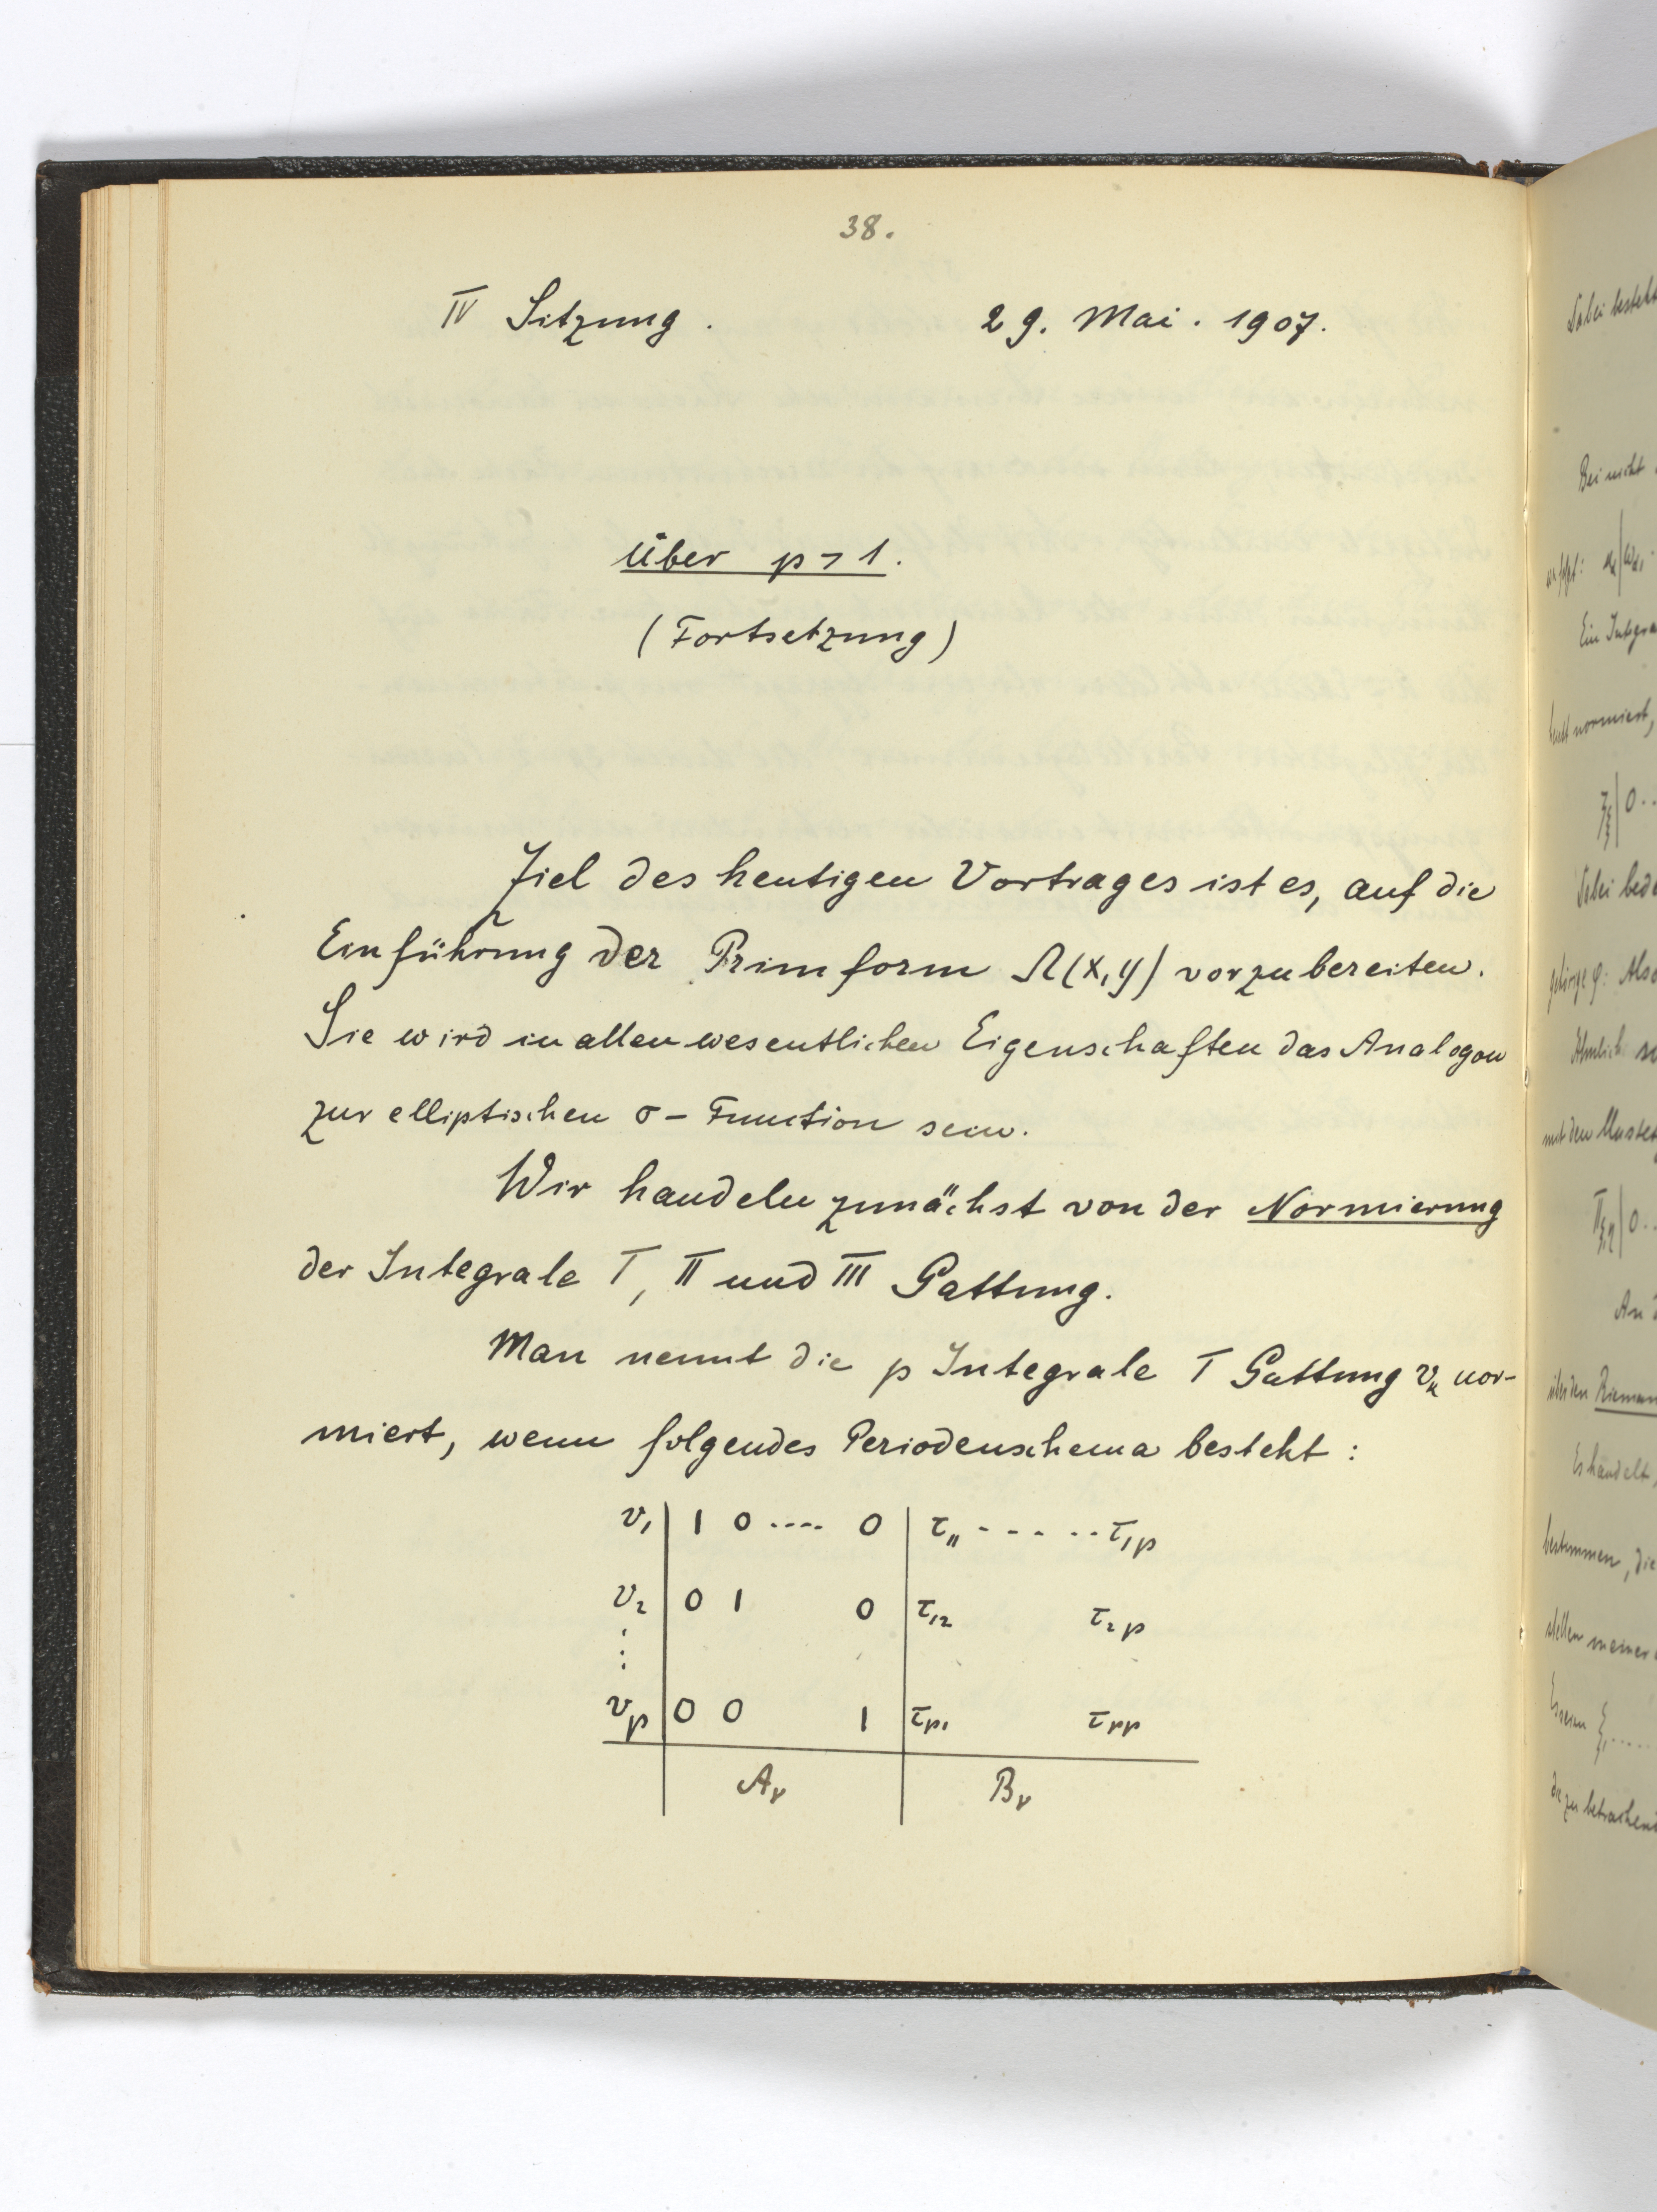 38.
IV Sitzung. 29. Mai. 1907.
Über p > 1.
(Fortsetzung)
Ziel des heutigen Vortrages ist es, auf die
Einführung der Primform Ω(x,y) vorzubereiten.
Sie wird in allen wesentlichen Eigenschaften das Analogon
zur elliptischen σ-Function sein.
Wir handeln zunächst von der Normierung
der Integrale I, II und III Gattung.
Man nennt die p Integrale I Gattung v_κ nor-
miert, wenn folgendes Periodenschema besteht:
v₁ | 1 0 .... 0 | τ₁₁ - - - - - τ₁p
v₂ | 0 1 0 | τ₁₂ τ₂p
⋮
v_p | 0 0 1 | τp₁ τpp
A_ν B_ν
Dabei besteht
Bei nicht
Ein Integra
normiert,
0..
Dabei bede
Also
Ähnlich
mit den Muster
0..
An
Rieman
Es handelt,
bestimmen, die
stellen
zu betrachend